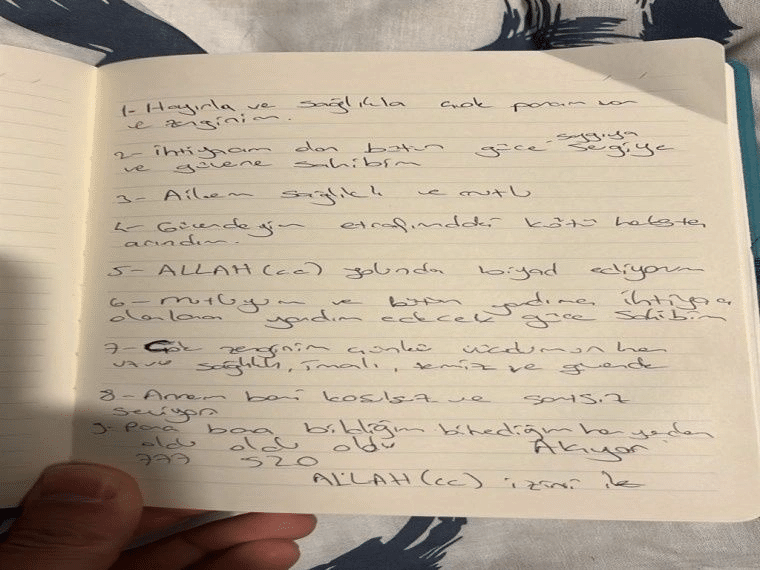 1- Hayırla ve sağlıkla çok param var
ve zenginim.
saygıya
2- ihtiyacım olan bütün güce sevgiye
ve güvene sahibim
3- Ailem sağlıklı ve mutlu
4- Güvendeyim etrafımdaki kötü
arındım.
5- ALLAH (cc) yolunda ediyorum
6- mutluyum ve bütün yardıma ihtiyacı
olanlara yardım edecek güce sahibim
7- Çok zenginim çünkü vücudumun her
sağlıklı, imanlı, temiz ve güvende
8- Annem beni koşulsuz ve şartsız
seviyor
9- Para bana bildiğim bilmediğim her yerden
oldu oldu oldu Akıyor
777 520
ALLAH (cc) izini ile